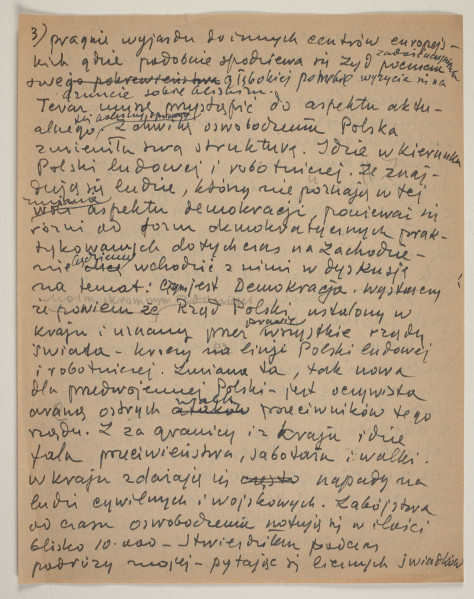 3) pragnie wyjazdu do innych centrów europejs-
kich gdzie podobnie spodziewa się Żyd
swego pokrewieństwa głębokiej potrzeby wyżycia się na
gruncie sobie bliskim.
Teraz muszę przystąpić do aspektu aktu-
alnego tej bolesnej sprawy. Z chwilą oswobodzenia Polska
zmieniła swą strukturę. Idzie w kierunku
Polski ludowej i robotniczej. Że znaj-
dują się ludzie, którzy nie poznają w tej
zmianie aspektu demokracji, ponieważ się
różni od form demokratycznych prak-
tykowanych dotychczas na Zachodzie –
nie będziemy wchodzić z nimi w dyskusję
na temat: czym jest Demokracja. Wystarczy
że powiem że Rząd Polski, ustalony w
kraju i uznany przez prawie wszystkie rządy
świata – kroczy na linji Polski ludowej
i robotniczej. Zmiana ta, tak nowa
dla przedwojennej Polski – jest oczywista
areną ostrych walk ataków przeciwników tego
rządu. Z za granicy i z kraju idzie
fala przeciwieństwa, sabotażu i walki.
W kraju zdarzają się często napady na
ludzi cywilnych i wojskowych. Zabójstwa
od czasu oswobodzenia notują się w ilości
blisko 10.000 – stwierdziłem podczas
podróży mojej – pytając się licznych świadków